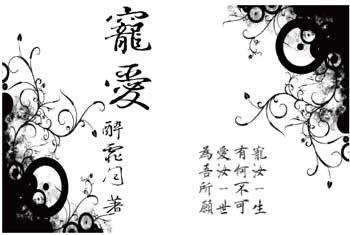 寵愛
醉霏閂 著
寵汝一生
有何不可
愛汝一世
為吾所願